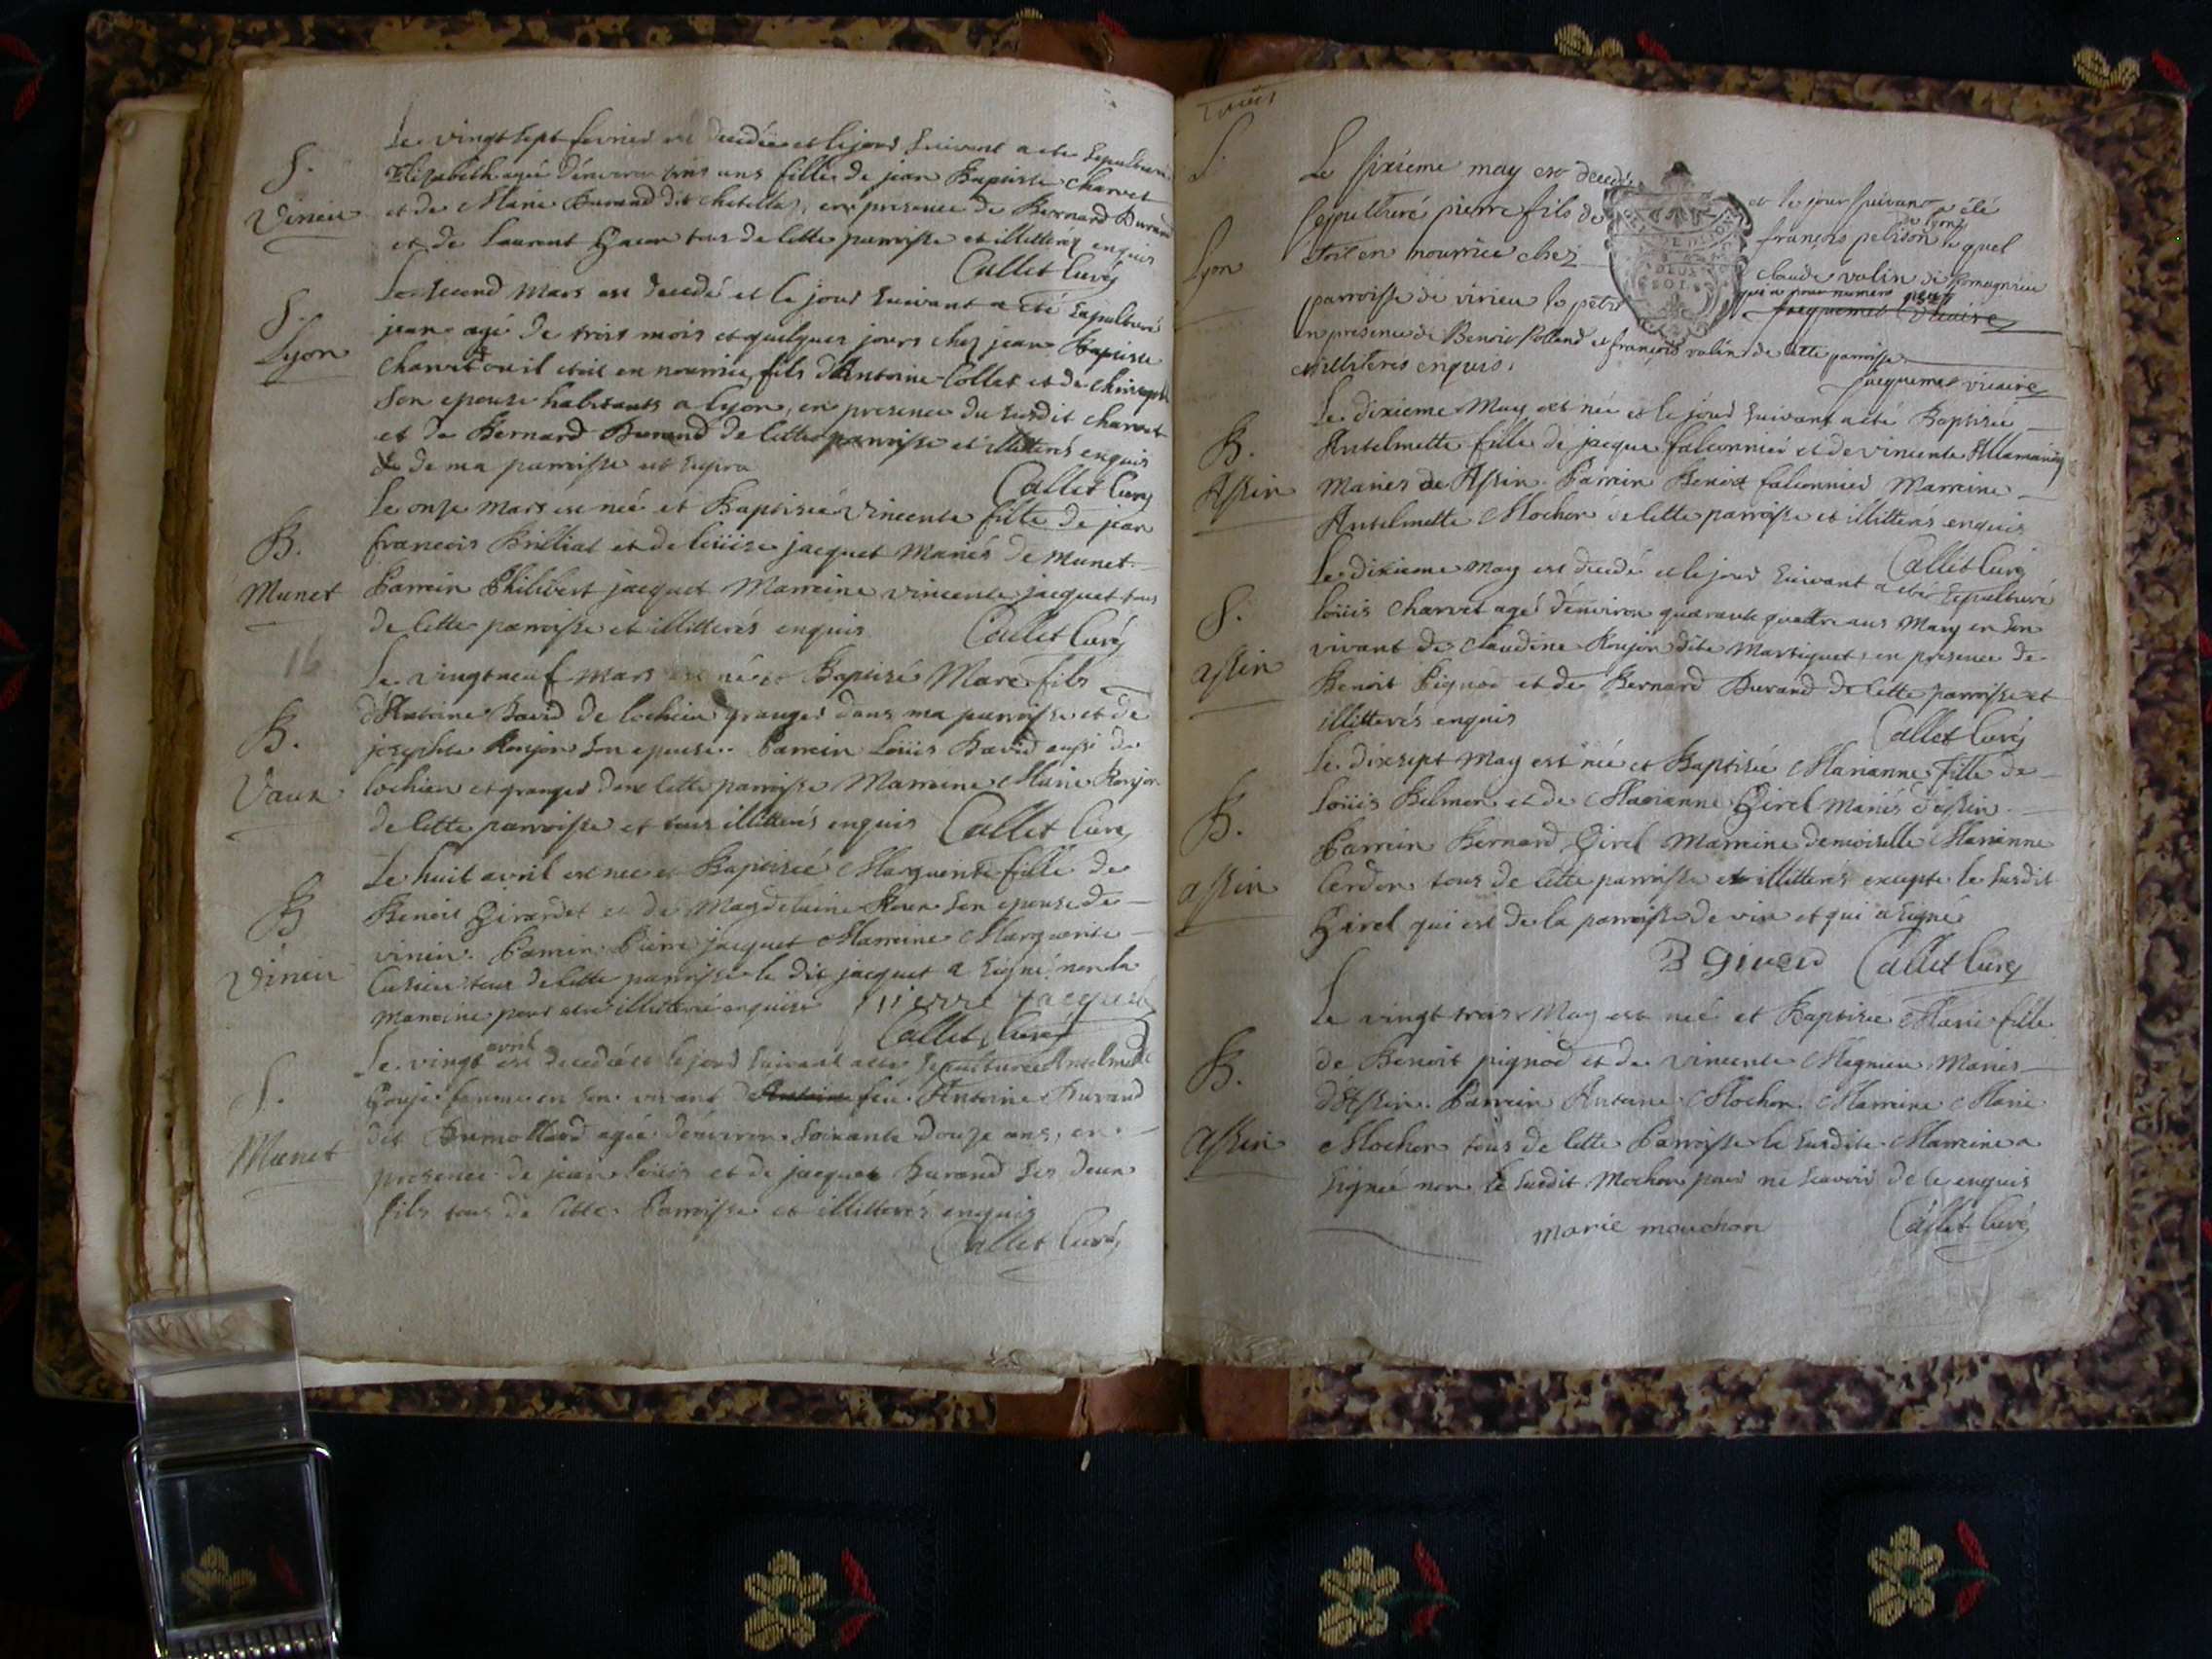 S.
Virieu
Le vingt sept fevrier est decedée et le jour suivant a ete sepulturée
Elizabeth agée d'environ trois ans fille de jean Baptiste charvet
et de Marie Durand dit chatella, en presence de Bernard Durand
et de Laurent tous de cette parroisse et illitterés enquis
Callet Curé
S.
Lyon
Le second mars est decedé et le jour suivant a eté sepulturé
jean agé de trois mois et quelques jours chez jean Baptiste
charvet ou il etoit en nourrice, fils d'Antoine Collet et de
son epouse habitants a lyon, en presence du susdit charvet
et de Bernard Durand de cette parroisse et illitterés enquis
de ma parroisse ut supra
Callet Curé
B.
Munet
Le onze mars est née et Baptisée vincente fille de jean
francois Brilliat et de loüise jacquet Mariés de munet
Parrein Philibert jacquet Marreine vincente jacquet tous
de cette parroisse et illitterés enquis
Callet Curé
16
B.
Vaux
Le vingt neuf mars est né et Baptisé Marc fils
d'Antoine David de lochieu granger dans ma parroisse et de
josephte Roujon son epouse. Parrein Loüis David aussi de
lochieu et granger dans cette parroisse Marreine Marie Roujon
de cette parroisse et tous illitterés enquis
Callet Curé
B
Virieu
Le huit avril est née et Baptisée Marguerite fille de
Benoit Girardet et de Magdeleine son epouse de
virieu. Parrein Pierre jacquet Marreine Marguerite
Cusieu tous de cette parroisse le dit jacquet a signé non la
Marreine pour etre illitterée enquise
pierre jacquet
Callet Curé
S.
Munet
Le vingt avril est decedée et le jour suivant a ete sepulturée Anselmette
Gouje femme en son vivant d'Antoine feu Antoine Durand
dit Brumolland agée d'environ soixante douze ans, en
presence de jean loüis et de jacques Durand ses deux
fils tous de cette Parroisse et illitterés enquis
Callet Curé
S.
Lyon
Le sixieme may est decedé et le jour suivant a été
sepulturé pierre fils de françois pelisson de lyon le quel
etoit en nourrice chez claude valin de Romagnieu
parroisse de virieu le petit qui a pour numero
jacquemet vicaire
en presence de Benoit Rolland et françois valin de cette parroisse
et illiterés enquis.
jacquemet vicaire
B.
Assin
Le dixieme May est née et le jour suivant a eté Baptisée
Antelmette fille de jacque falconnier et de vincente Allemand
Mariés de Assin. Parrein Benoit falconnier Marreine
Antelmette Mochon de cette parroisse et illitterés enquis
Callet Curé
S.
assin
Le dixieme May est decedé et le jour suivant a eté sepulturé
loüis charvet agé d'environ quarante quattre ans Mary en son
vivant de claudine Roujon dite Martiquet, en presence de
Benoit Pignod et de Bernard Durand de cette parroisse et
illitterés enquis
Callet Curé
B.
assin
Le dixsept May est née et Baptisée Marianne fille de
Loüis Belmon et de Marianne Girel Mariés d'assin
Parrein Bernard Girel Marreine demoiselle Marianne
Cerdon tous de cette parroisse et illitterés excepté le susdit
Girel qui est de la parroisse de vin et qui a signé
Callet Curé
B.
assin
Le vingt trois May est née et Baptisée Marie fille
de Benoit pignod et de vincente Magnieu Mariés
d'Assin. Parrein Antoine Mochon. Marreine Marie
Mochon tous de cette Parroisse la susdite Marreine a
signée non le susdit Mochon pour ne scavoir de ce enquis
marie mouchon
Callet Curé